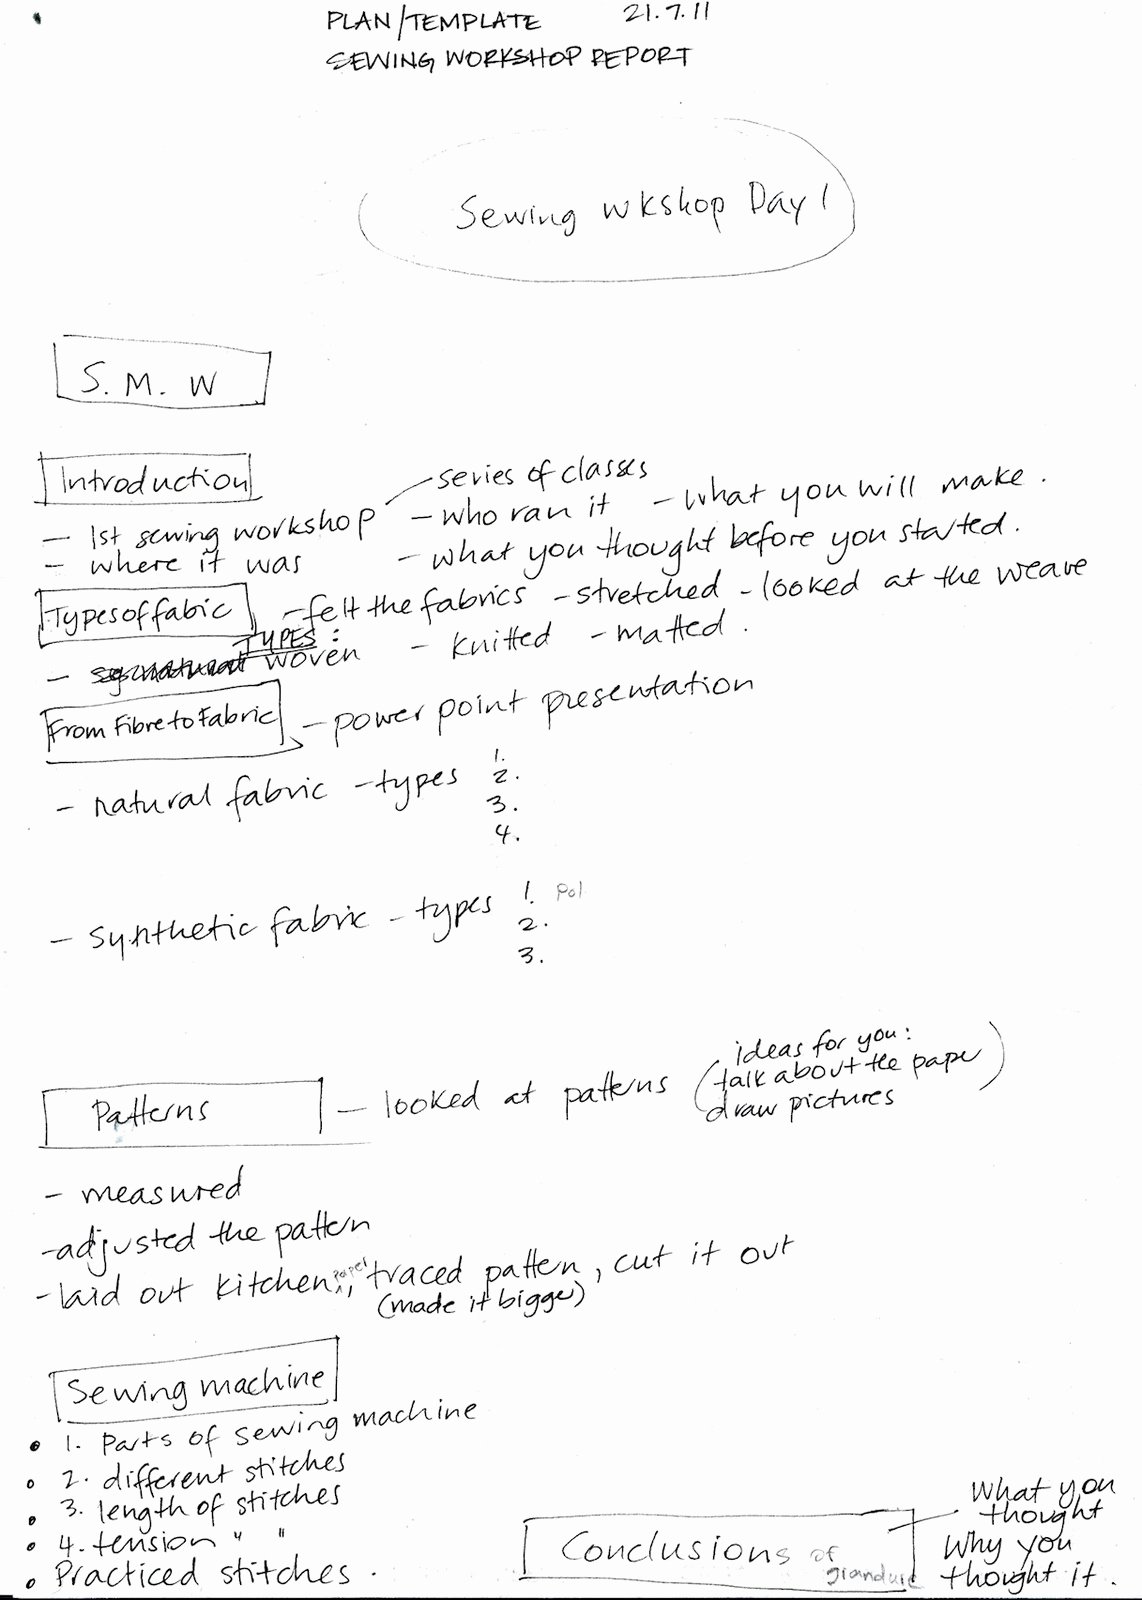 PLAN/TEMPLATE 21.7.11
SEWING WORKSHOP REPORT
Sewing wkshop Day 1
S. M. W
Introduction
- 1st sewing workshop - series of classes
- who ran it - what you will make.
- where it was - what you thought before you started.
Types of fabric - felt the fabrics - stretched - looked at the weave
TYPES:
- woven - knitted - matted.
From Fibre to Fabric - power point presentation
- natural fabric - types 1.
2.
3.
4.
- synthetic fabric - types 1. Pol
2.
3.
Patterns - looked at patterns (ideas for you:
talk about the paper
draw pictures)
- measured
- adjusted the pattern
- laid out kitchen paper, traced pattern, cut it out
(made it bigger)
Sewing machine
• 1. Parts of sewing machine
• 2. different stitches
• 3. length of stitches
• 4. tension " "
• Practiced stitches.
Conclusions of
What you
thought
Why you
thought it.